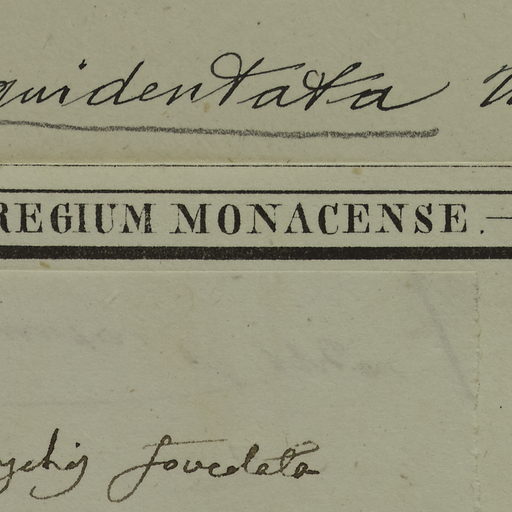 quidentata
REGIUM MONACENSE.
foveolata